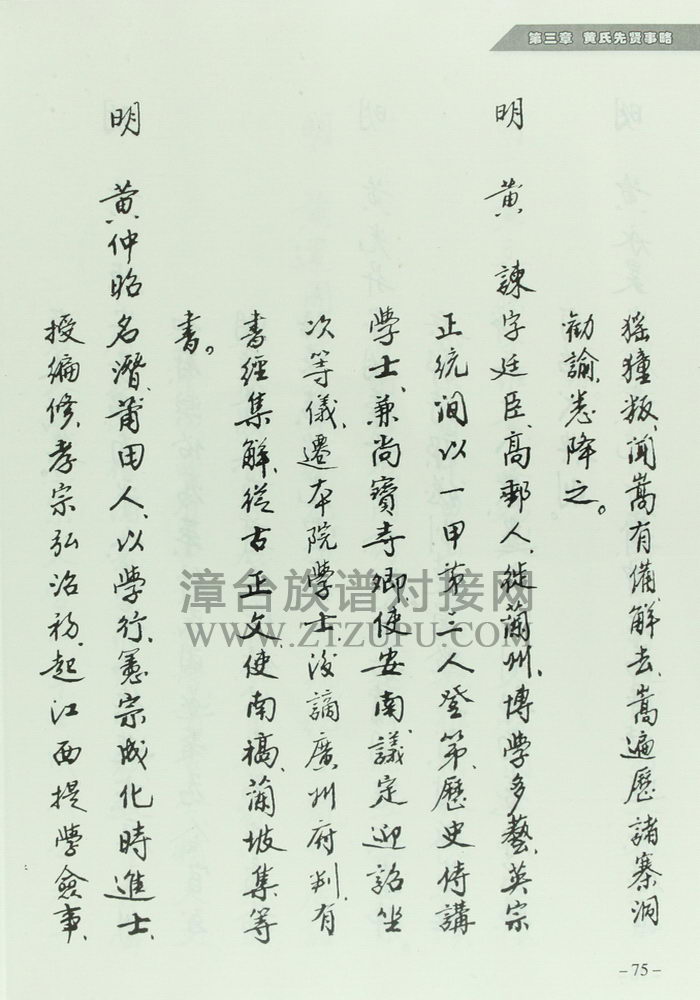 第三章 黄氏先贤事略
猺獞叛、闻嵩有備、解去、嵩遍歷諸寨洞
勸諭、悉降之。
明 黄 諫字廷臣、高郵人、徙蘭州、博學多藝、英宗
正統间以一甲第三人登第、歷史侍講
學士、兼尚寶寺卿、使安南、議定迎詔坐
次等儀、遷本院學士、後謫廣州府判、有
書經集解、從古正文、使南稿、蘭坡集等
書。
明 黄仲昭名潛、莆田人、以學行、憲宗成化時進士、
授編修、孝宗弘治初、起江西提學僉事、
漳台族谱对接网
WWW.ZTZUPU.COM
-75-